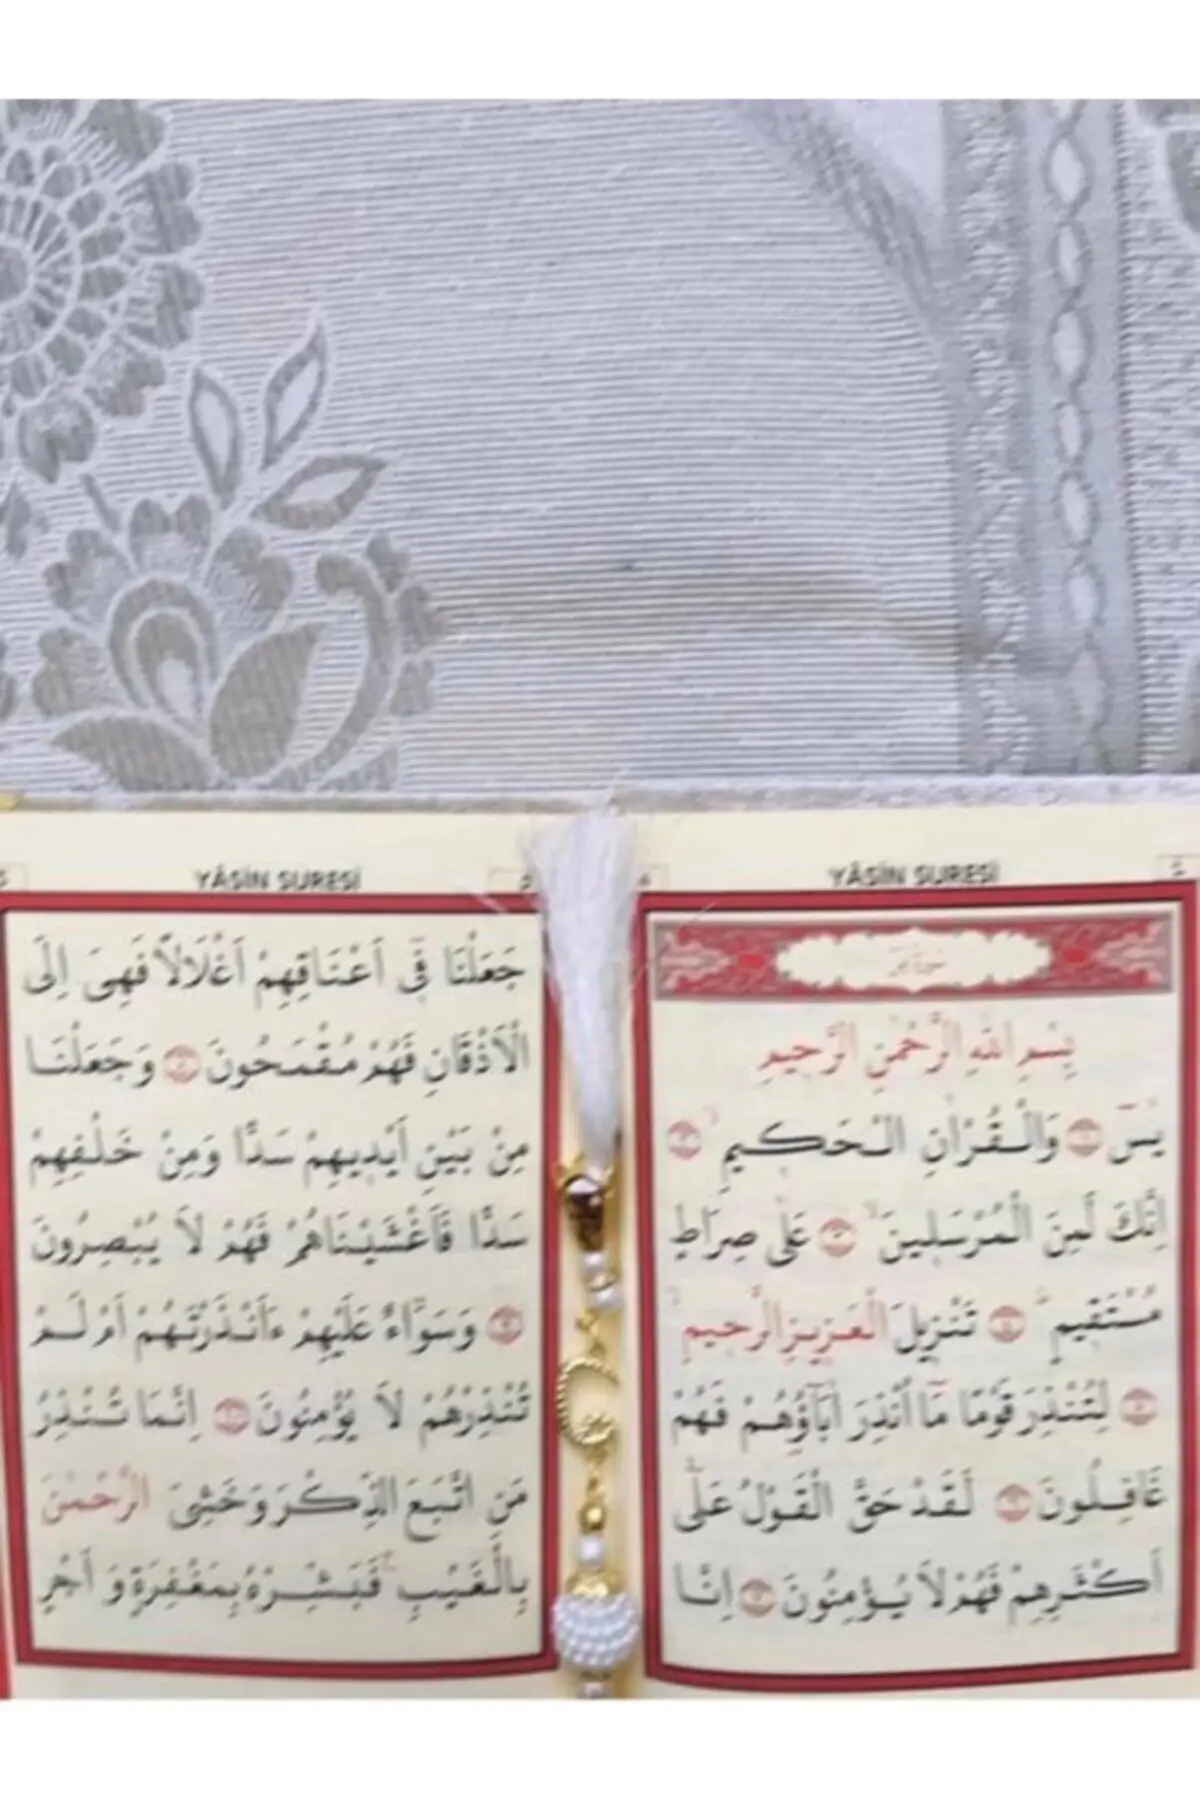 YÂSİN SURESİ
بِسْمِ اللّٰهِ الرَّحْمٰنِ الرَّحِيمِ
يٰسٓ ﴿١﴾ وَالْقُرْاٰنِ الْحَكِيمِ ﴿٢﴾
اِنَّكَ لَمِنَ الْمُرْسَلِينَ ﴿٣﴾ عَلٰى صِرَاطٍ
مُسْتَقِيمٍ ﴿٤﴾ تَنْزِيلَ الْعَزِيزِ الرَّحِيمِ
﴿٥﴾ لِتُنْذِرَ قَوْمًا مَٓا اُنْذِرَ اٰبَٓاؤُهُمْ فَهُمْ
غَافِلُونَ ﴿٦﴾ لَقَدْ حَقَّ الْقَوْلُ عَلٰٓى
اَكْثَرِهِمْ فَهُمْ لَا يُؤْمِنُونَ ﴿٧﴾ اِنَّا
YÂSİN SURESİ
جَعَلْنَا فِٓى اَعْنَاقِهِمْ اَغْلَالًا فَهِىَ اِلَى
الْاَذْقَانِ فَهُمْ مُقْمَحُونَ ﴿٨﴾ وَجَعَلْنَا
مِنْ بَيْنِ اَيْدِيهِمْ سَدًّا وَمِنْ خَلْفِهِمْ
سَدًّا فَاَغْشَيْنَاهُمْ فَهُمْ لَا يُبْصِرُونَ
﴿٩﴾ وَسَوَٓاءٌ عَلَيْهِمْ ءَاَنْذَرْتَهُمْ اَمْ لَمْ
تُنْذِرْهُمْ لَا يُؤْمِنُونَ ﴿١٠﴾ اِنَّمَا تُنْذِرُ
مَنِ اتَّبَعَ الذِّكْرَ وَخَشِىَ الرَّحْمٰنَ
بِالْغَيْبِ فَبَشِّرْهُ بِمَغْفِرَةٍ وَ اَجْرٍ